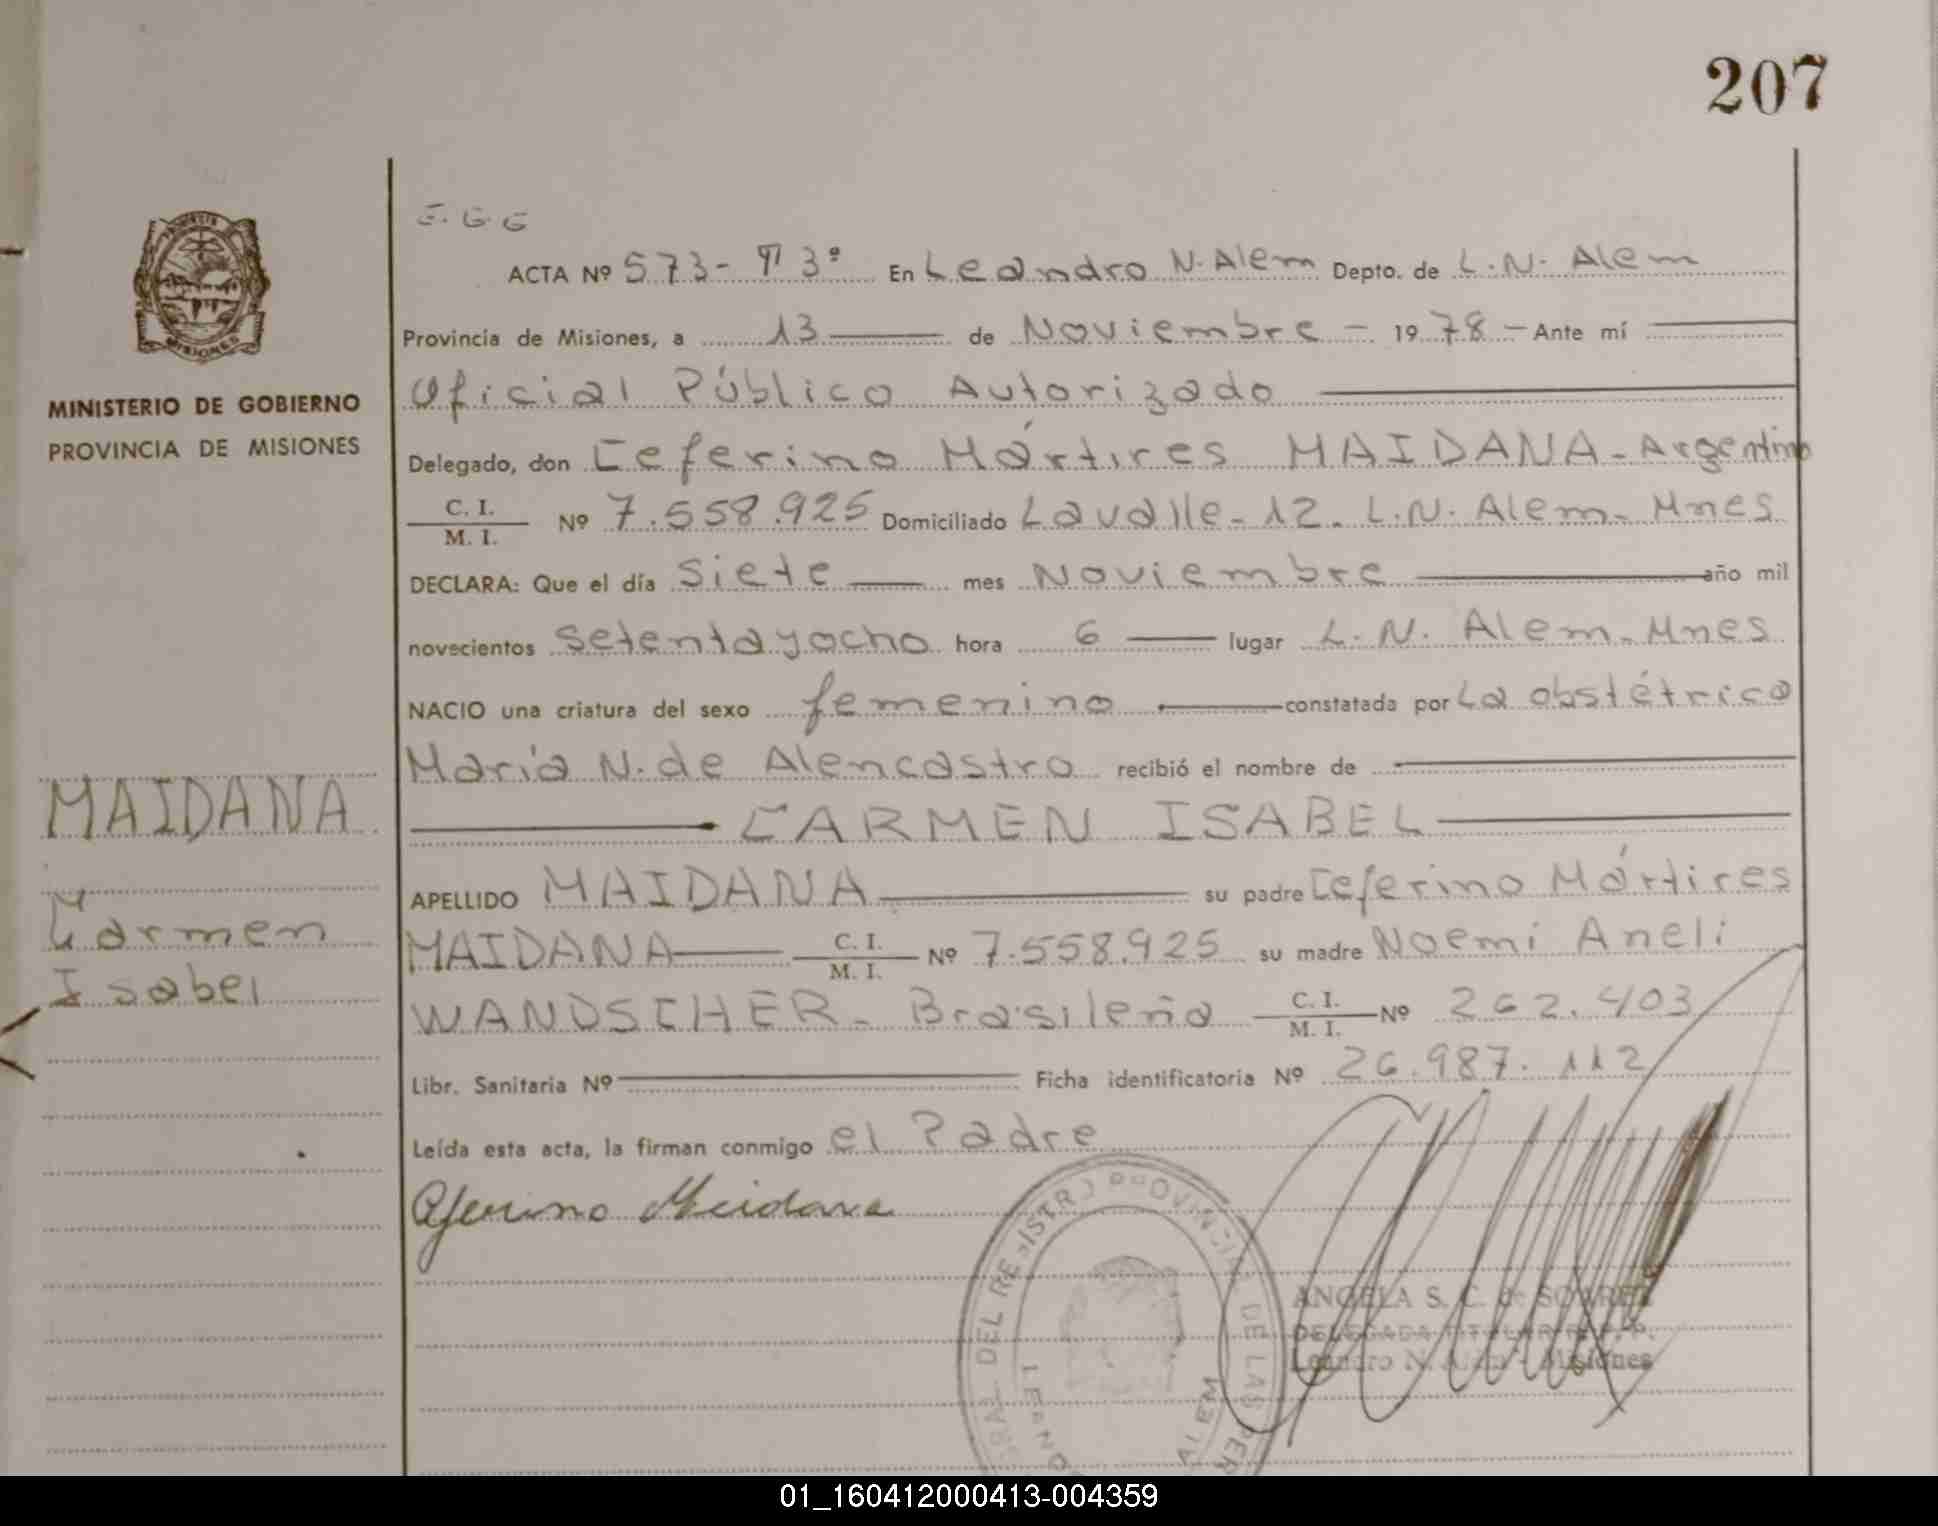 207
E.G.G
ACTA Nº 573- Tº 3º En Leandro N. Alem Depto. de L.N. Alem
Provincia de Misiones, a 13 de Noviembre - 1978 - Ante mí
Oficial Público Autorizado
MINISTERIO DE GOBIERNO
PROVINCIA DE MISIONES
Delegado, don Ceferino Mártires MAIDANA - Argentino
C. I.
M. I. Nº 7.558.925 Domiciliado Lavalle - 12. L.N. Alem - Mnes
DECLARA: Que el día Siete mes Noviembre año mil
novecientos Setenta y ocho hora 6 lugar L.N. Alem - Mnes
NACIO una criatura del sexo femenino constatada por La obstétrica
María N. de Alencastro recibió el nombre de
MAIDANA
CARMEN ISABEL
APELLIDO MAIDANA su padre Ceferino Mártires
Carmen
MAIDANA C. I. M. I. Nº 7.558.925 su madre Noemi Aneli
Isabel
WANDSCHER - Brasileña C. I. M. I. Nº 262.403
Libr. Sanitaria Nº Ficha identificatoria Nº 26.987.112
Leída esta acta, la firman conmigo el Padre
Ceferino Maidana
DEL REGISTRO PROVINCIAL DE LAS PER
ALEM
ANGELA S. C. de SOAREZ
DELEGADA TITULAR R.P.P.
Leandro N. Alem - Misiones
01_160412000413-004359